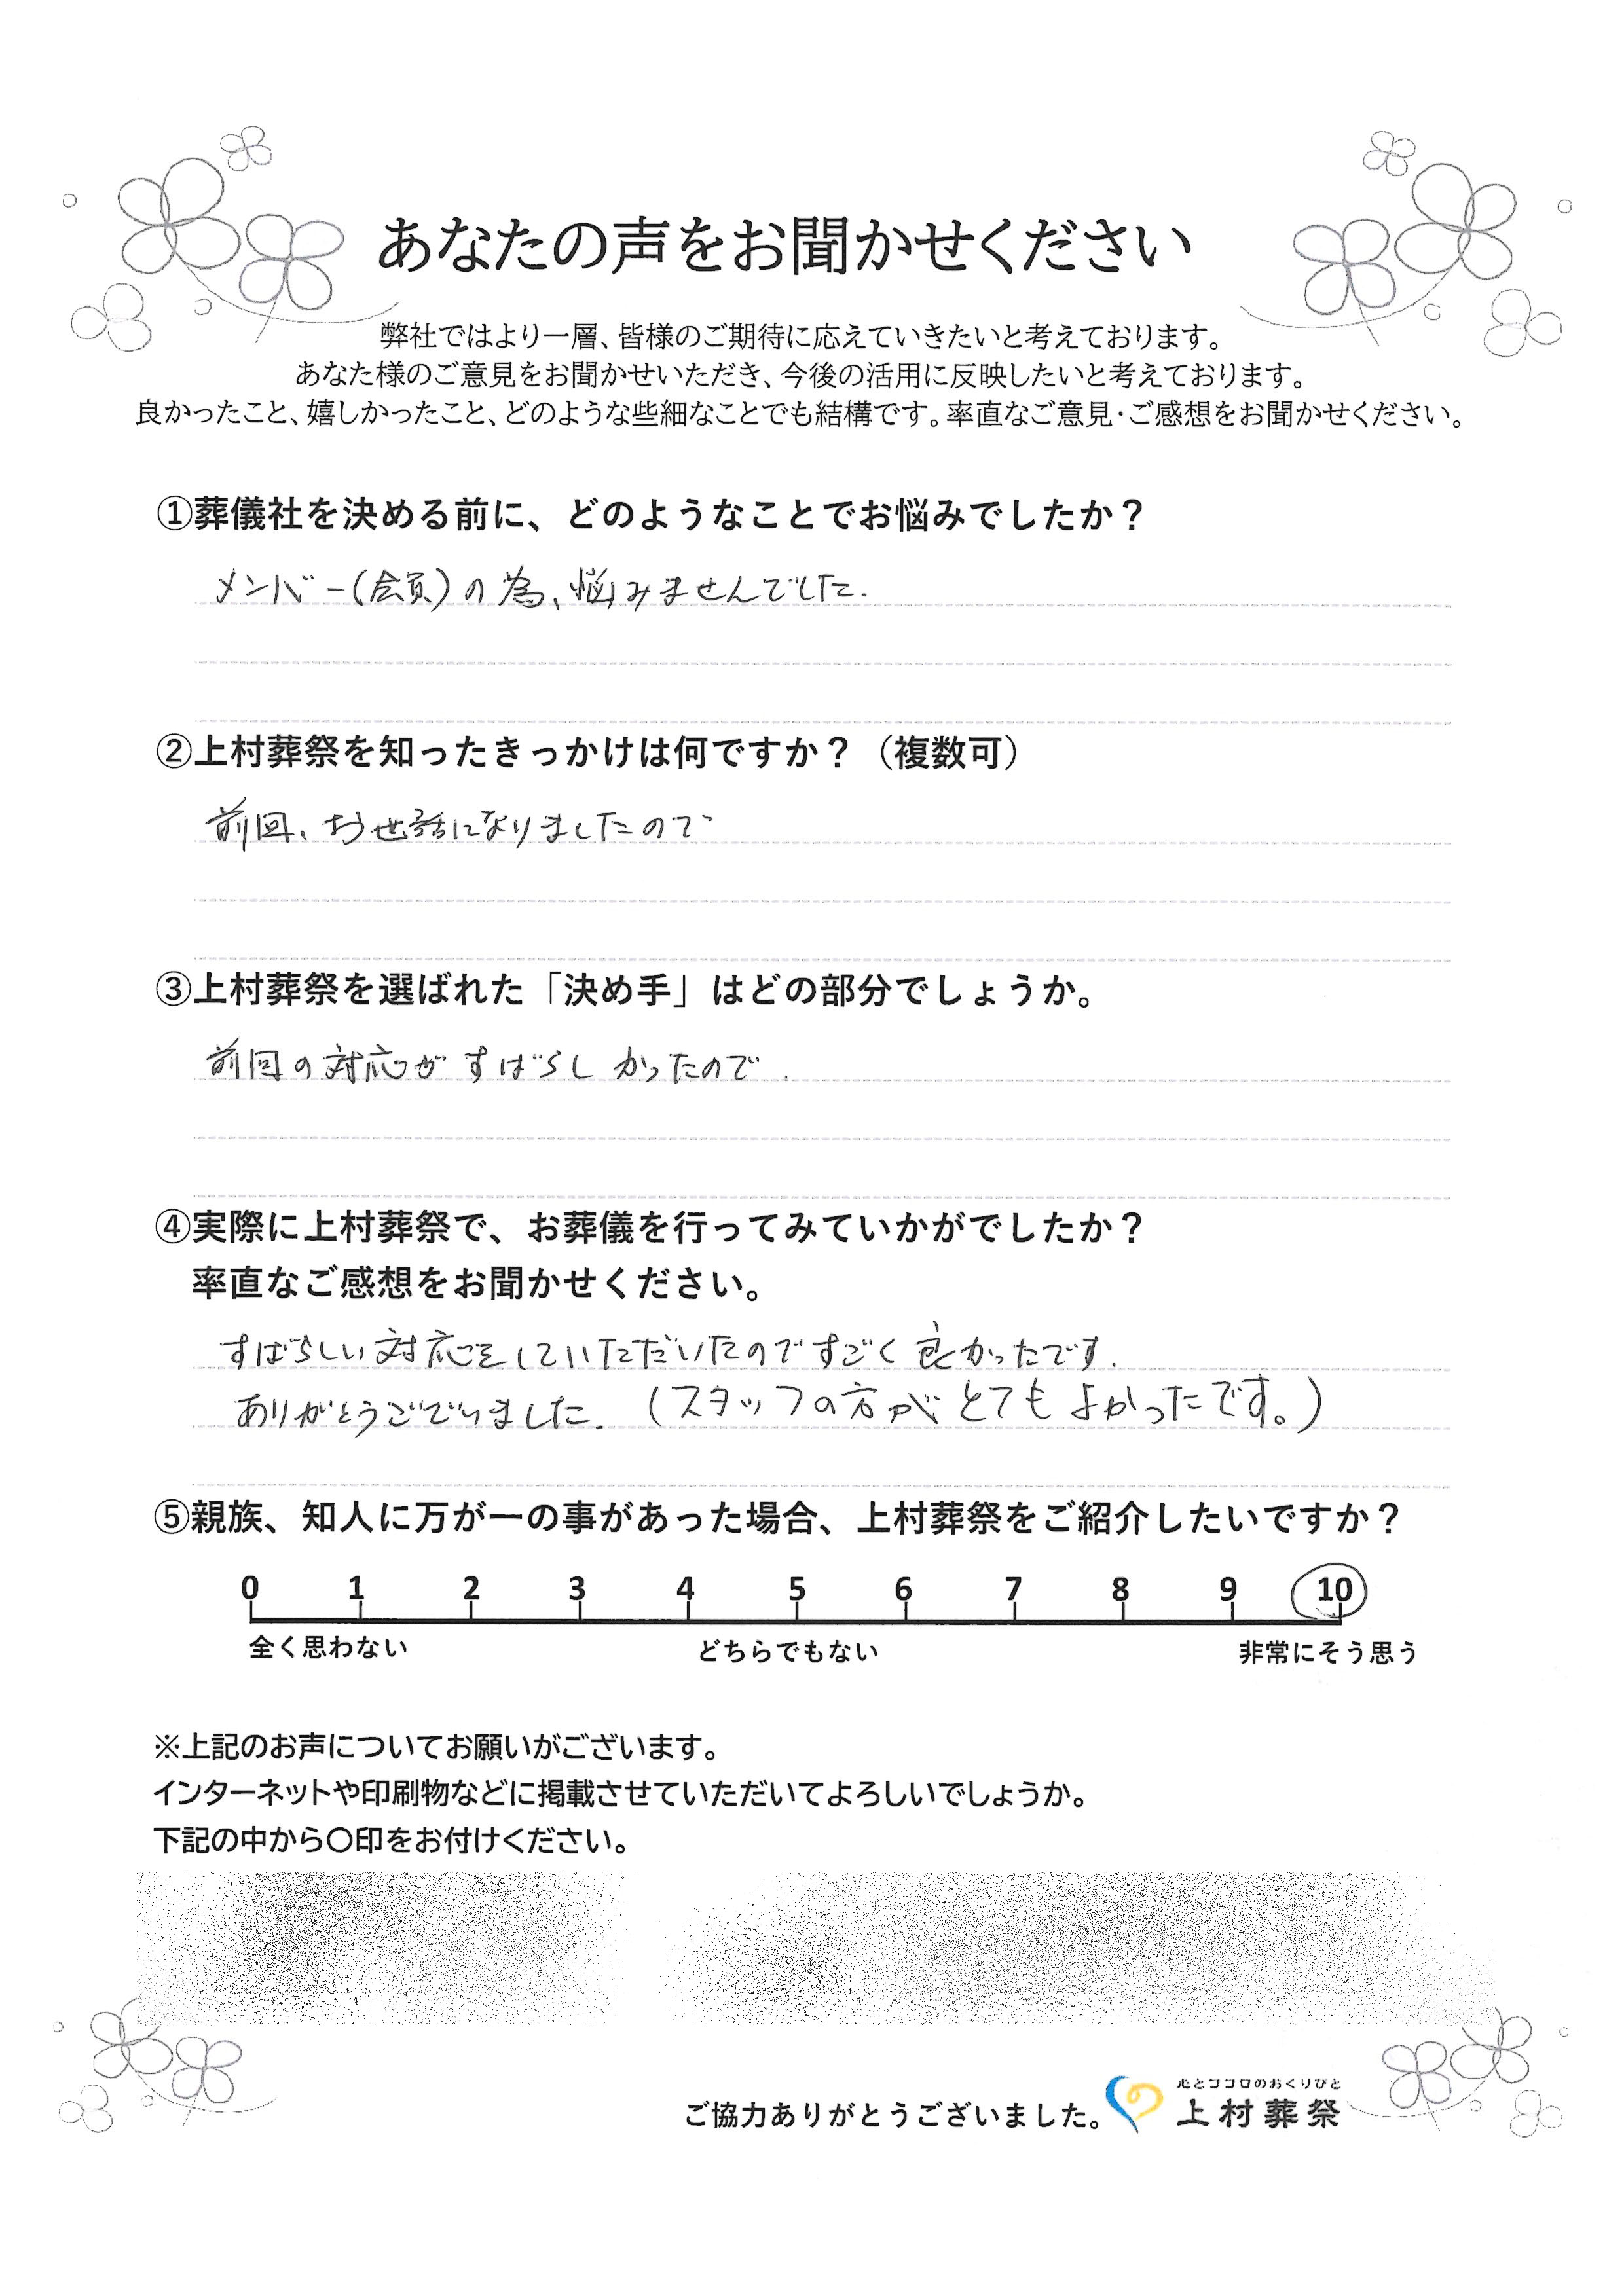 あなたの声をお聞かせください
弊社ではより一層、皆様のご期待に応えていきたいと考えております。
あなた様のご意見をお聞かせいただき、今後の活用に反映したいと考えております。
良かったこと、嬉しかったこと、どのような些細なことでも結構です。率直なご意見・ご感想をお聞かせください。
①葬儀社を決める前に、どのようなことでお悩みでしたか？
メンバー（会員）の為、悩みませんでした.
②上村葬祭を知ったきっかけは何ですか？（複数可）
前回、お世話になりましたので
③上村葬祭を選ばれた「決め手」はどの部分でしょうか。
前回の対応がすばらしかったので.
④実際に上村葬祭で、お葬儀を行ってみていかがでしたか？
率直なご感想をお聞かせください。
すばらしい対応をしていただいたのですごく良かったです.
ありがとうございました.（スタッフの方がとてもよかったです。）
⑤親族、知人に万が一の事があった場合、上村葬祭をご紹介したいですか？
0 1 2 3 4 5 6 7 8 9 10
全く思わない どちらでもない 非常にそう思う
※上記のお声についてお願いがございます。
インターネットや印刷物などに掲載させていただいてよろしいでしょうか。
下記の中から〇印をお付けください。
心とココロのおくりびと
ご協力ありがとうございました。上村葬祭